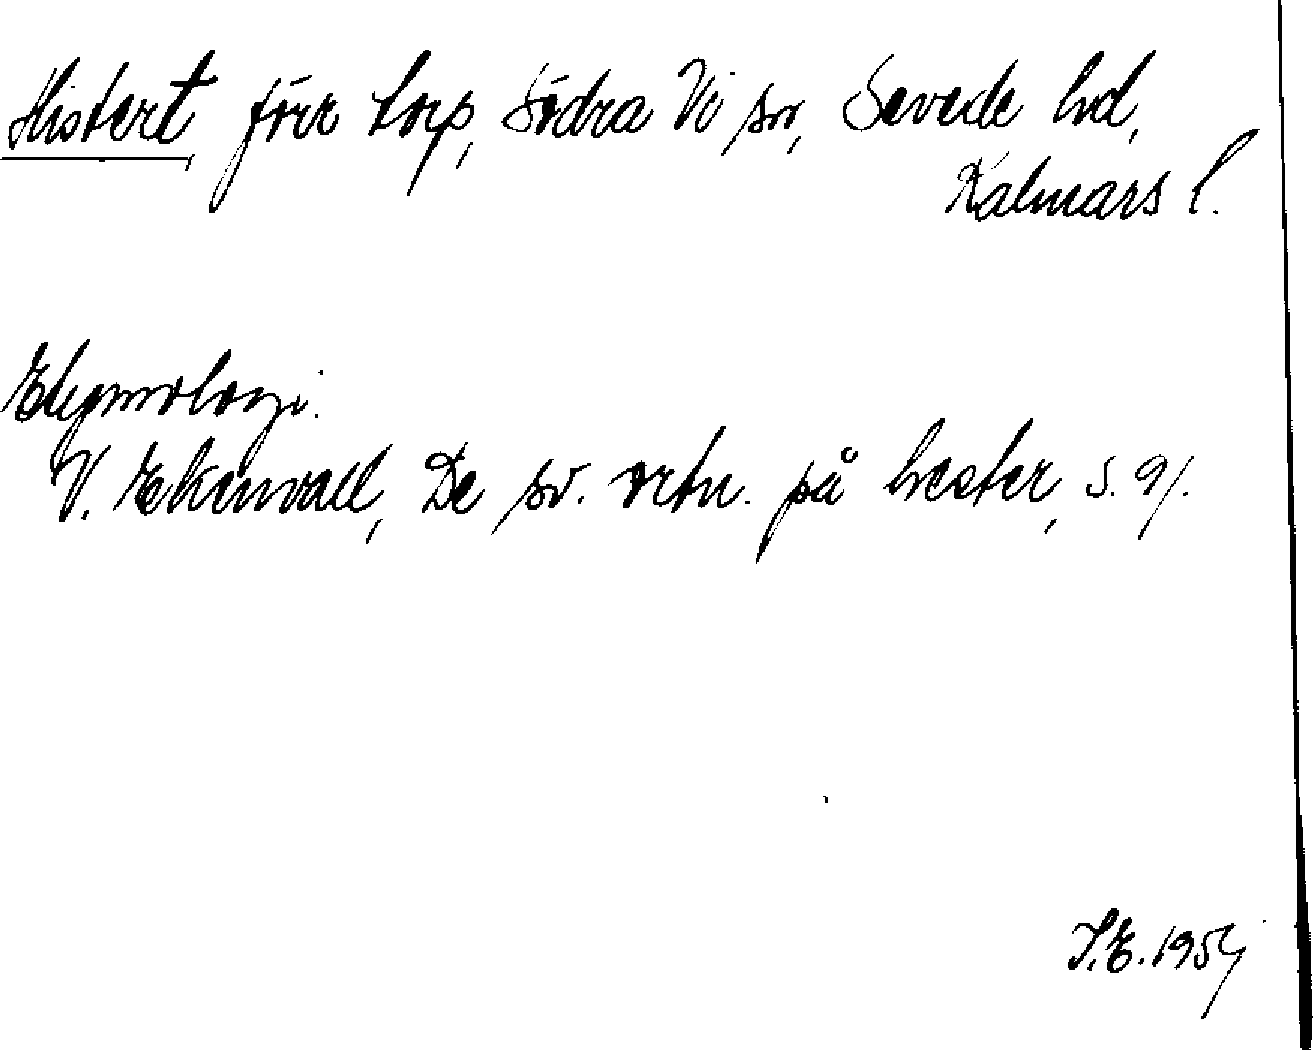 Histert, förr torp, Södra Vi sn, Sevede hd,
Kalmars l.
Etymologi.
V. Ekenvall, De sv. ortn. på hester, s. 91.
S.E. 1954